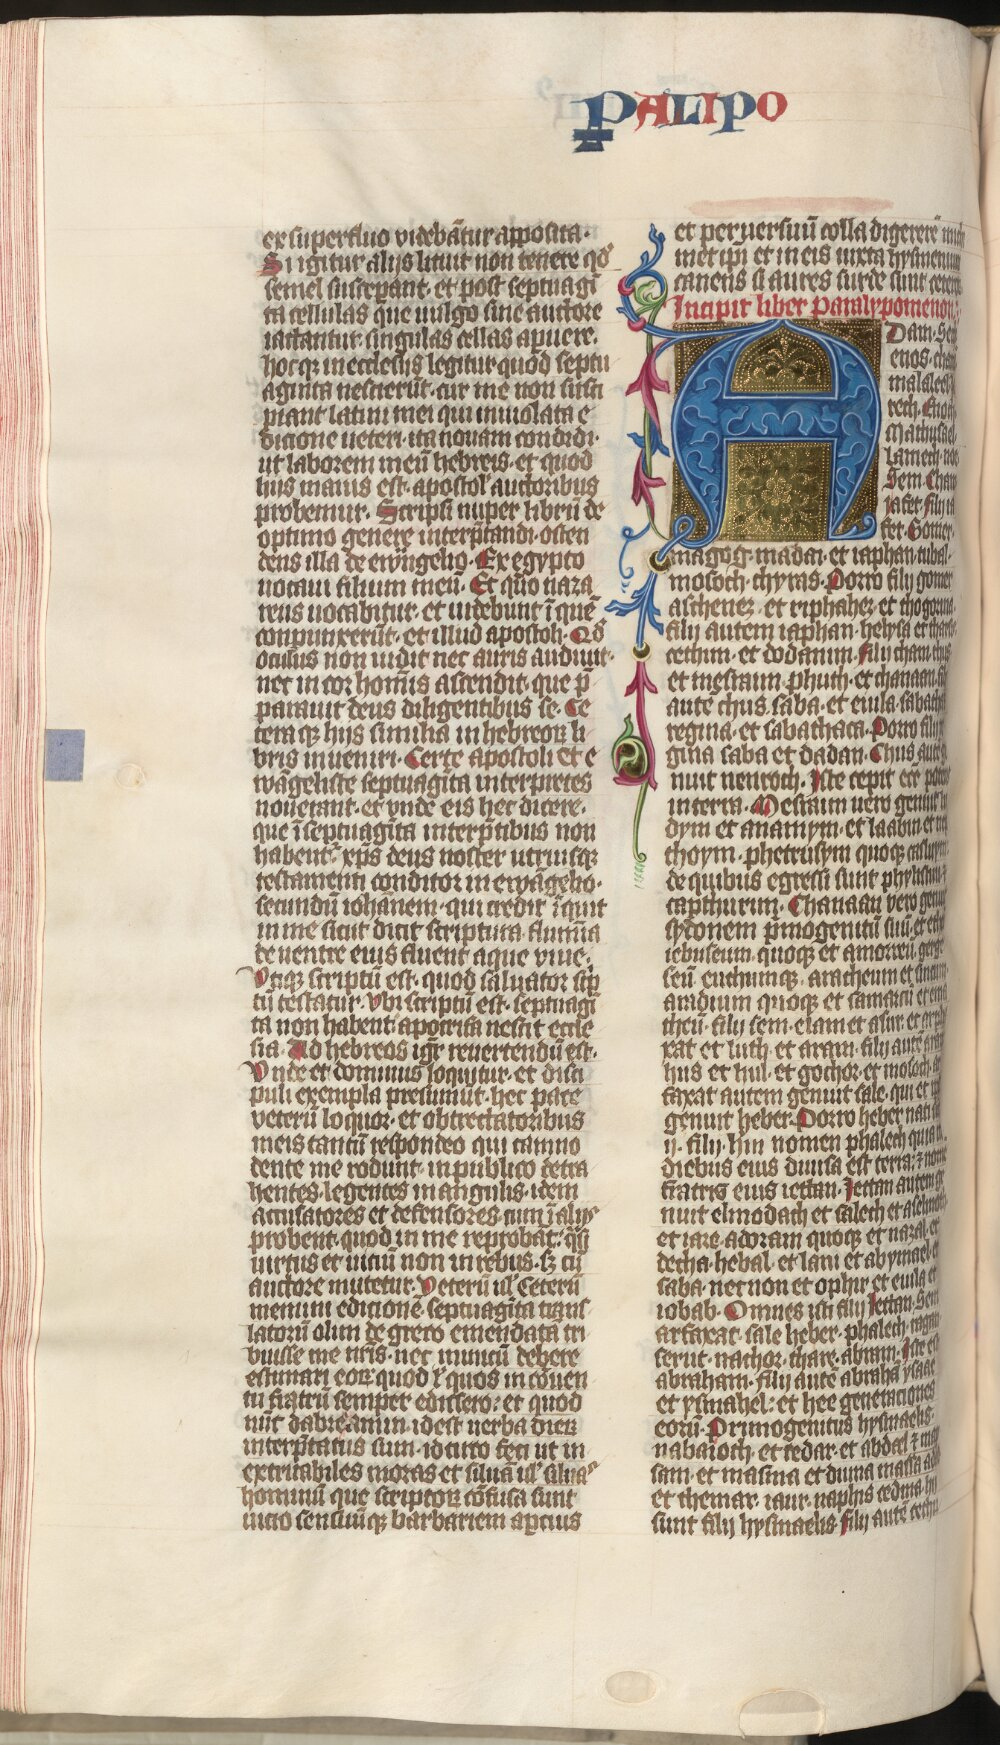 PALIPO
ex superfluo videbãtur apposita·
Si igitur alijs lituit non tenere qd̕
semel susceperant· et post septuagĩ
ta cellulas que uulgo sine auctore
iactantur· singulas cellas apuere·
hocq; in ecclesijs legitur quod septu
aginta nescierũt· cur me non susci
piant latini mei qui inuiolata e
dicione ueteri· ita nouam condidi·
ut laborem meũ hebreis· et quod
hijs maius est· apostol' auctoribus
probemur· Scripsi nuper librũ de
optimo genere interp̃tandi· osten
dens illa de ewãgelio· Ex egypto
uocaui filium meũ· Et quo naza
reus uocabitur· et uidebunt ĩ quẽ
conpunxerũt· et illud apostoli· Qd̕
oculus non uidit nec auris audiuit·
nec in cor hom̃is ascendit· que p̃
parauit deus diligentibus se· Ce
tera q; hijs similia in hebreoꝝ li
bris inueniri· Certe apostoli et e
wãgeliste septuagĩta interp̃tes
nouerant· et vnde eis hec dicere·
que ĩ septuagĩta interp̃tibus non
habent᷑· xp̃s deus noster utriusq;
testamenti conditor in ewãgelio·
secundũ iohãnem· qui credit ĩquit
in me sicut dicit scriptura flumĩa
de uentre eius fluent aque viue·
Vtiq; scriptũ est· quod saluator sc̃p
tũ testatur· Vbi scriptũ est· septuagĩ
ta non habent· apocrifa nescit eccle
sia· Ad hebreos igr̃ reuertendũ est·
Vnde et dominus loquitur· et disci
puli exempla presumũt· hec pace
veterũ loquor· et obtrectatoribus
meis tantũ respondeo qui canino
dente me rodunt· in publico detra
hentes· legentes in angulis· idem
accusatores et defensores· cum ĩ alijs
probent· quod in me reprobãt· q̃si
uirtus et uiciũ non in rebus· s; cũ
auctore mutetur· Veterũ ul' Ceterũ
memini editionẽ septuagĩta trans
latorũ olim de greco emendatã tri
buisse me nr̃is· nec inimicũ debere
estimari eoꝝ quod l' quos in cõuen
tu fratrũ semper edissero: et quod
nũc dabreiamin· idest uerba dieꝝ
interp̃tatus sum· idcirco feci ut in
extricabiles moras et siluã ul' siluas
hominũ que scriptoꝝ cõfusa sunt
uicio sensuũq; barbariem apcius
et per uersuũ colla digererẽ
met ipi et in eis iuxta hysmenium
canens si aures surde sunt
Incipit liber Paralypomenon·
ADam· Seth
enos·
malaleel
rech· Enoch
Mathusael
lamech· noe
Sem· Cham
iafet· filij ia
fet· Gomer·
magog· madai· et iaphan· tubal·
mosoch· thyras· Porro filij gomer
aschenez· et riphahez· et thogorma·
filij autem iaphan· helysa et tharsis·
cethim· et dodanim· filij cham· chus
et mesraim· phuth· et chanaan· filij
autẽ chus· saba· et euila· sabatha
regma· et sabathaca· Porro filij re
gma saba et dadan· Chus autẽ ge
nuit nemroth· Iste cepit eẽ potens
in terra· Mesraim uero genuit lu
dym et anamym· et laabin et nep
thoym· phetrusym quoq; casluym·
de quibus egressi sunt phylistijm ⁊
capthurim· Chanaan vero genuit
sydonem p̃mogenitũ suũ· et etheũ
iebuseum quoq; et amorreũ· gerge
seũ· eucheumq; aracheum et sineum
aradium quoq; et samareũ et ema
theũ· filij sem· elam et asur· et arpha
xat et luth· et aram· filij autẽ aram
hus et hul· et gothor· et mosoch· ar
faxat autem genuit sale· qui et ipe
genuit heber· Porro heber nati sũt
ij· filij· hin nomen phalech quia in
diebus eius diuisa est terra: ⁊ nomẽ
fratris eius iectan· Iectan autem ge
nuit elmodath et salech et aselmoth
et iare· adoram quoq; et nazal· et
decha· hebal· et lam et abymael et
saba· necnon et ophir et euila et
iobab· Omnes isti filij Iectan· Sem
arfaxat· sale heber· phalech· ragau
serut· nachor· thare· abram· Iste est
abraham· filij autẽ abrahã ysaac
et ysmahel: et hee generaciones
eorũ· Primogenitus hysmaelis·
nabaioth· et cedar· et abdeel ⁊ map
sam· et masma et duma massa
et themar· iaur· naphis cedma· hij
sunt filij hysmaelis· filij autẽ cethu